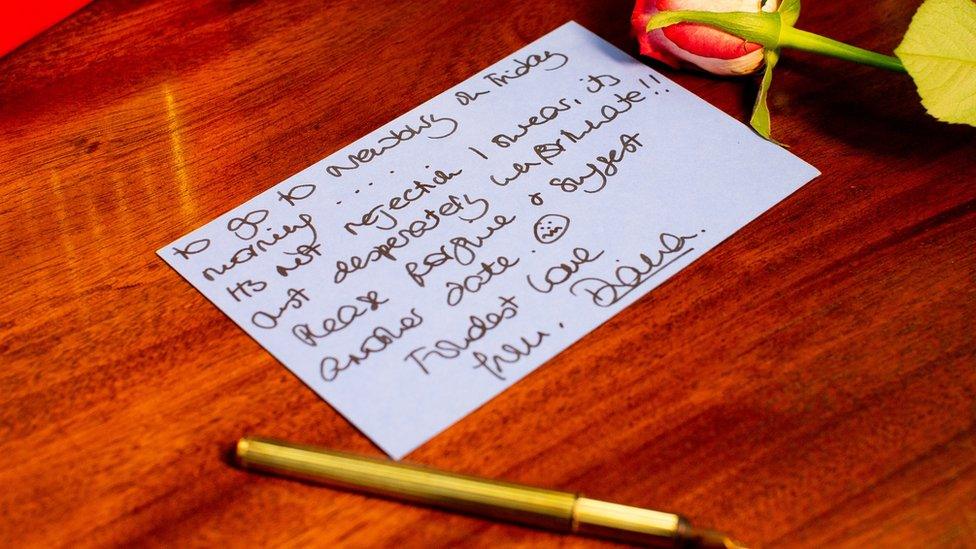 to go to Newbury on Friday
morning ....
It's not rejection I swear, its
just desperately unfortunate!!
Please forgive & suggest
another date.
Fondest love
from. Diana.